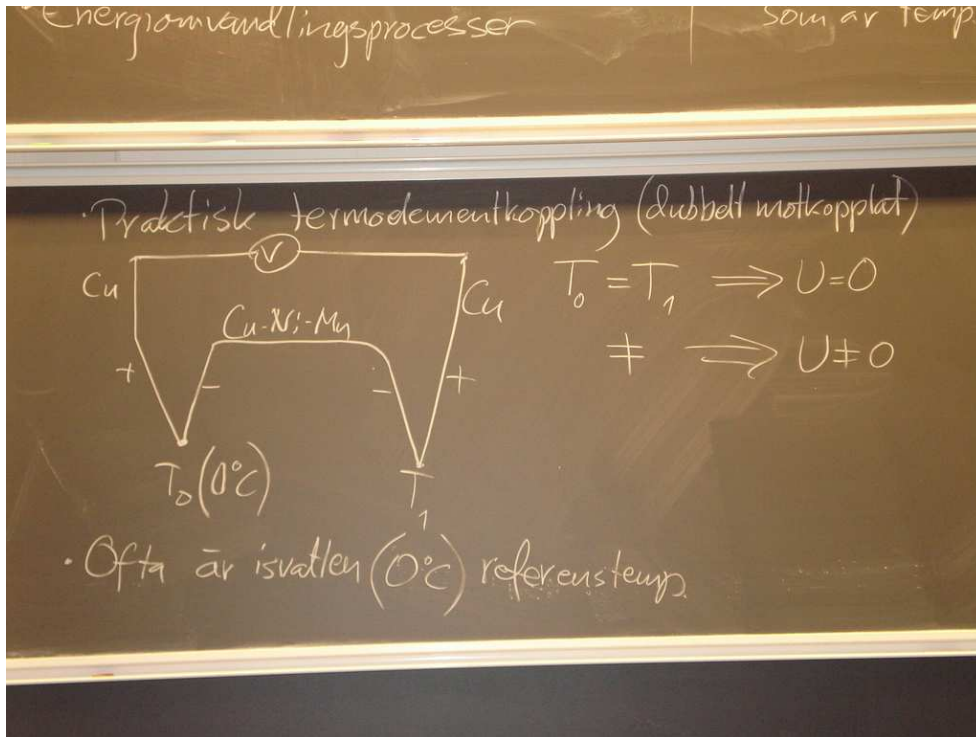 · Energiomvandlingsprocesser
som är temp
· Praktisk termoelementkoppling (dubbelt motkopplat)
V
Cu
Cu
Cu-Ni-Mn
+ - - +
T₀ (0°C)
T₁
T₀ = T₁ ⟹ U=0
≠ ⟹ U≠0
· Ofta är isvatten (0°C) referenstemp.